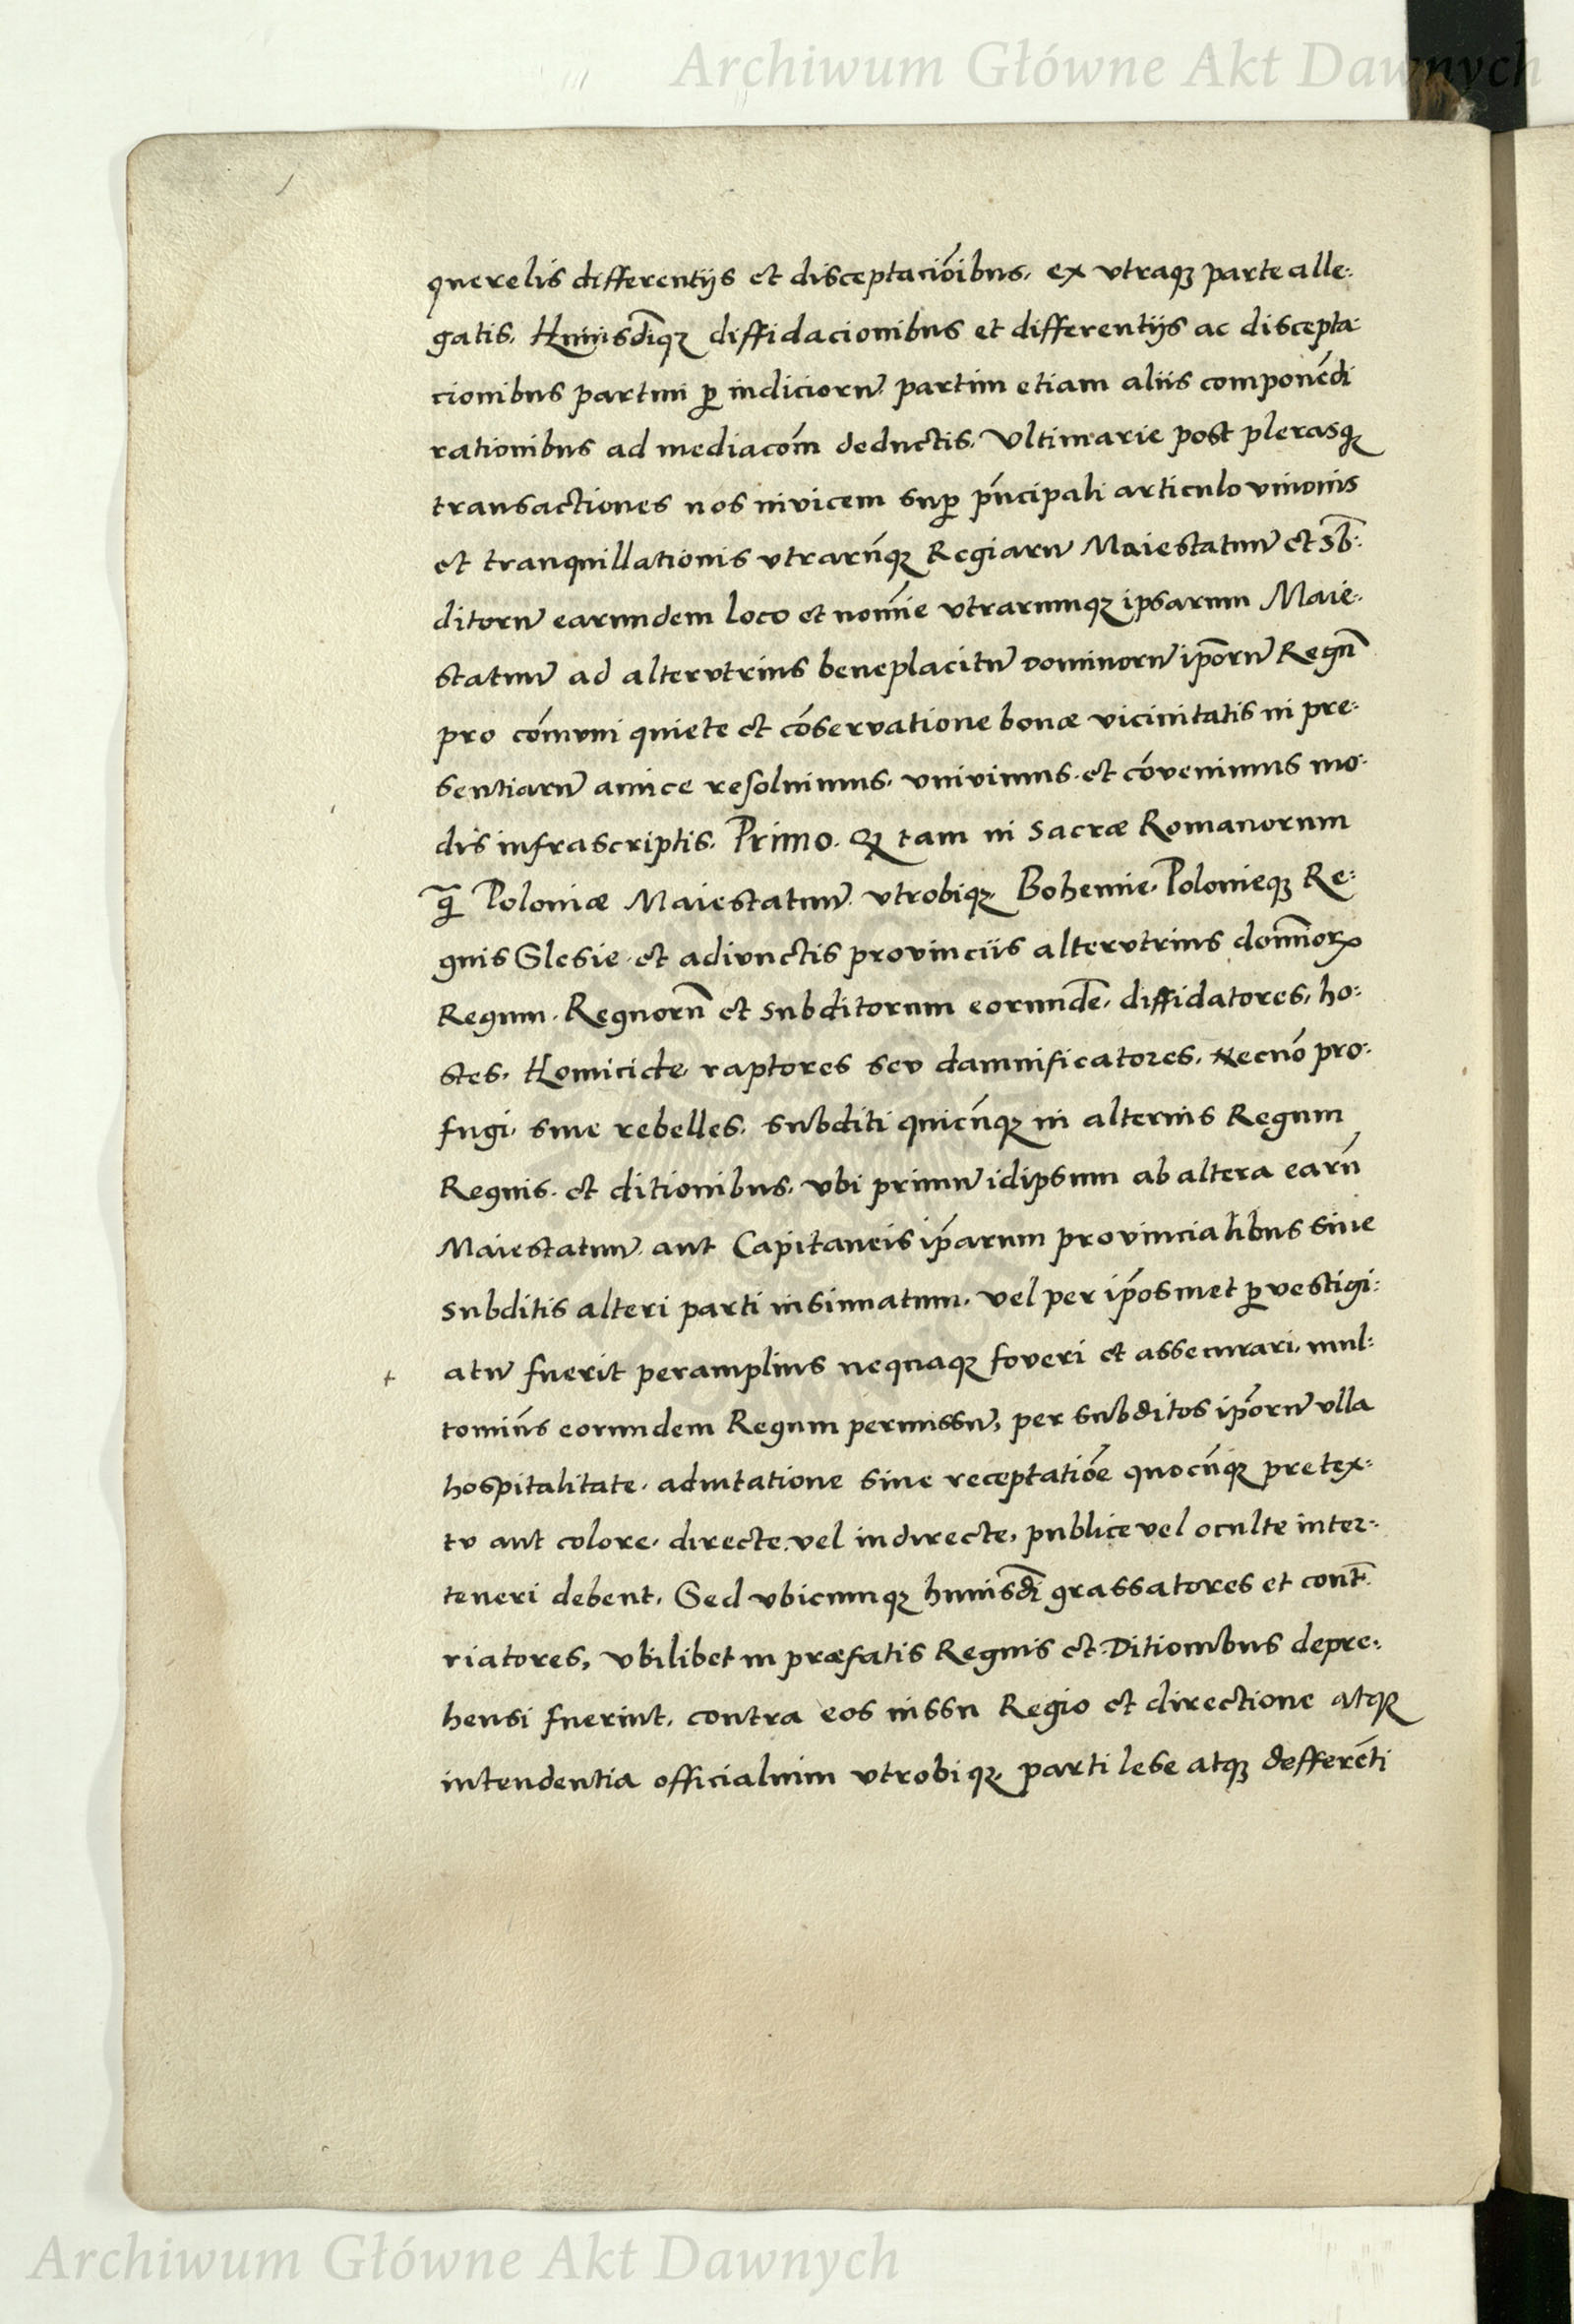 Archiwum Główne Akt Dawnych
querelis differentijs et disceptaciōibus, ex vtraqꝫ parte alle:
gatis. Huiusdīqꝫ diffidacionibus et differentijs ac discepta:
cionibus partim ꝑ iudiciorū partim etiam aliis componēdi
rationibus ad mediacōm deductis. Vltimarie post plerasqꝫ
transactiones nos invicem suꝑ pńcipali articulo vnionis
et tranquillationis vtrarūqꝫ Regiarū Maiestatum̄ et sb̄:
ditorū earundem loco et nom̄ie vtrarumqꝫ ipsarum Maie:
statum̄ ad altervtrius beneplacitū dominorū ip̄orū Regn̄
pro cōmvni quiete et cōservatione bonæ vicinitatis in pre:
sentiarū amice resoluimus, vnivimus et cōvenimus mo:
dis infrascriptis. Primo. Qꝫ tam in sacræ Romanorum
q̄ Poloniæ Maiestatum̄ vtrobiqꝫ Bohemie, Polonieqꝫ Re:
gnis Slesie et adivnctis provinciis altervtrius domīorꝝ
Regum. Regnorū et subditorum eorundē, diffidatores, ho:
stes, Homicide raptores sev damnificatores, necnō pro:
fugi, siue rebelles, subditi quicūqꝫ in alterius Regum
Regnis et ditionibus, vbi primū idipsum ab altera earū
Maiestatum̄ aut Capitaneis ip̄arum provincialibus siue
subditis alteri parti insinuatum, vel per ip̄osmet ꝑvestigi:
atū fuerit peramplius nequaqꝫ foveri et assecurari, mul:
tomin̄s eorundem Regum permissū, per subditos ip̄orū vlla
hospitalitate, adiutatione siue receptatiōe quocūqꝫ pretex:
tv aut colore, directe vel indirecte, publice vel oculte inter:
teneri debent, Sed vbicumqꝫ huiusdī grassatores et cont̄:
riatores, vbilibet in præfatis Regnis et Ditionibus depre:
hensi fuerint, contra eos iussu Regio et directione atqꝫ
intendentia officialium vtrobiqꝫ parti lese atqꝫ defferēti
Archiwum Główne Akt Dawnych